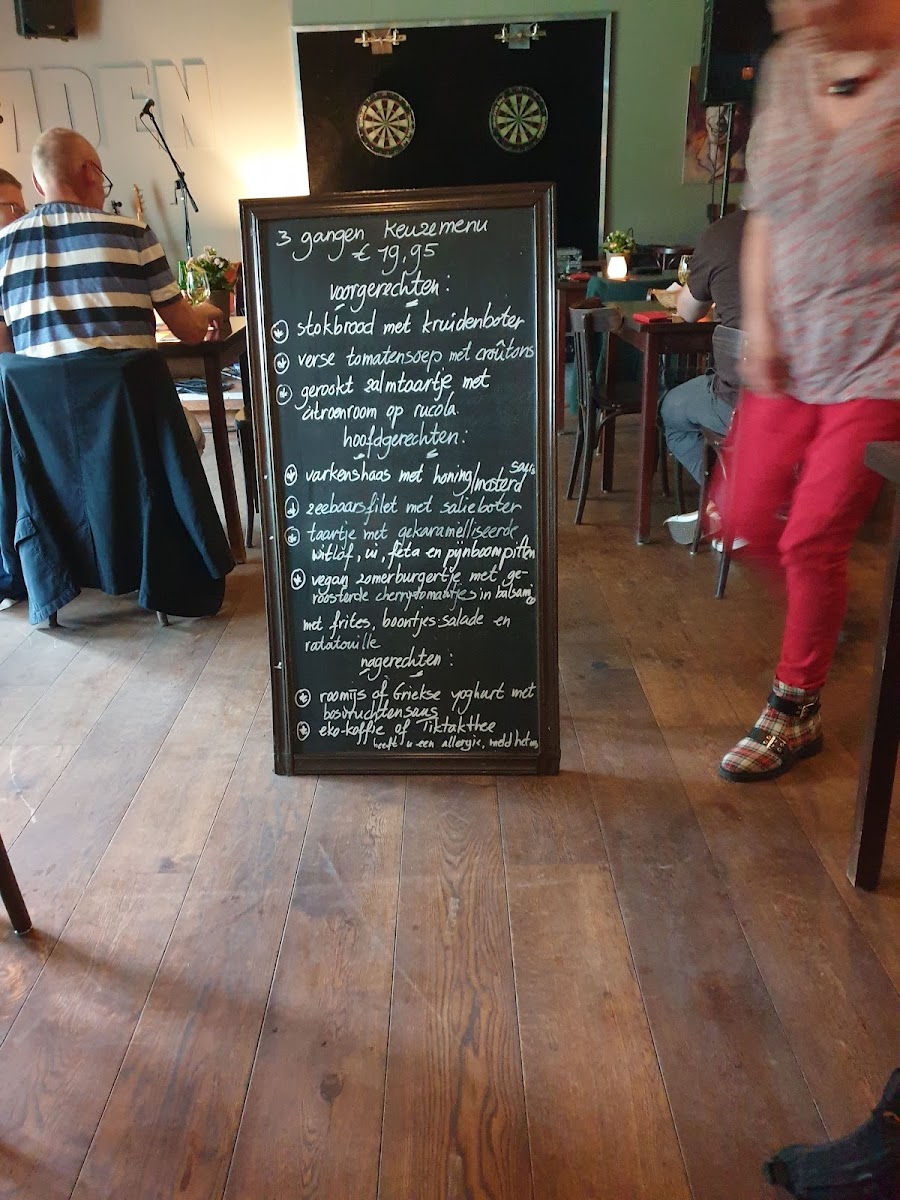 DEN
3 gangen keuzemenu
€ 19,95
voorgerechten:
stokbrood met kruidenboter
verse tomatensoep met croûtons
gerookt zalmtaartje met
citroenroom op rucola.
hoofdgerechten:
varkenshaas met honing/mosterd saus
zeebaarsfilet met salieboter
taartje met gekaramelliseerde
witlof, ui, feta en pijnboompitten
vegan zomerburgertje met ge-
roosterde cherrytomaatjes in balsamico
met frites, boontjes salade en
ratatouille
nagerechten:
roomijs of Griekse yoghurt met
bosvruchtensaus
eko-koffie of Tiktakthee
heeft u een allergie, meld het ons